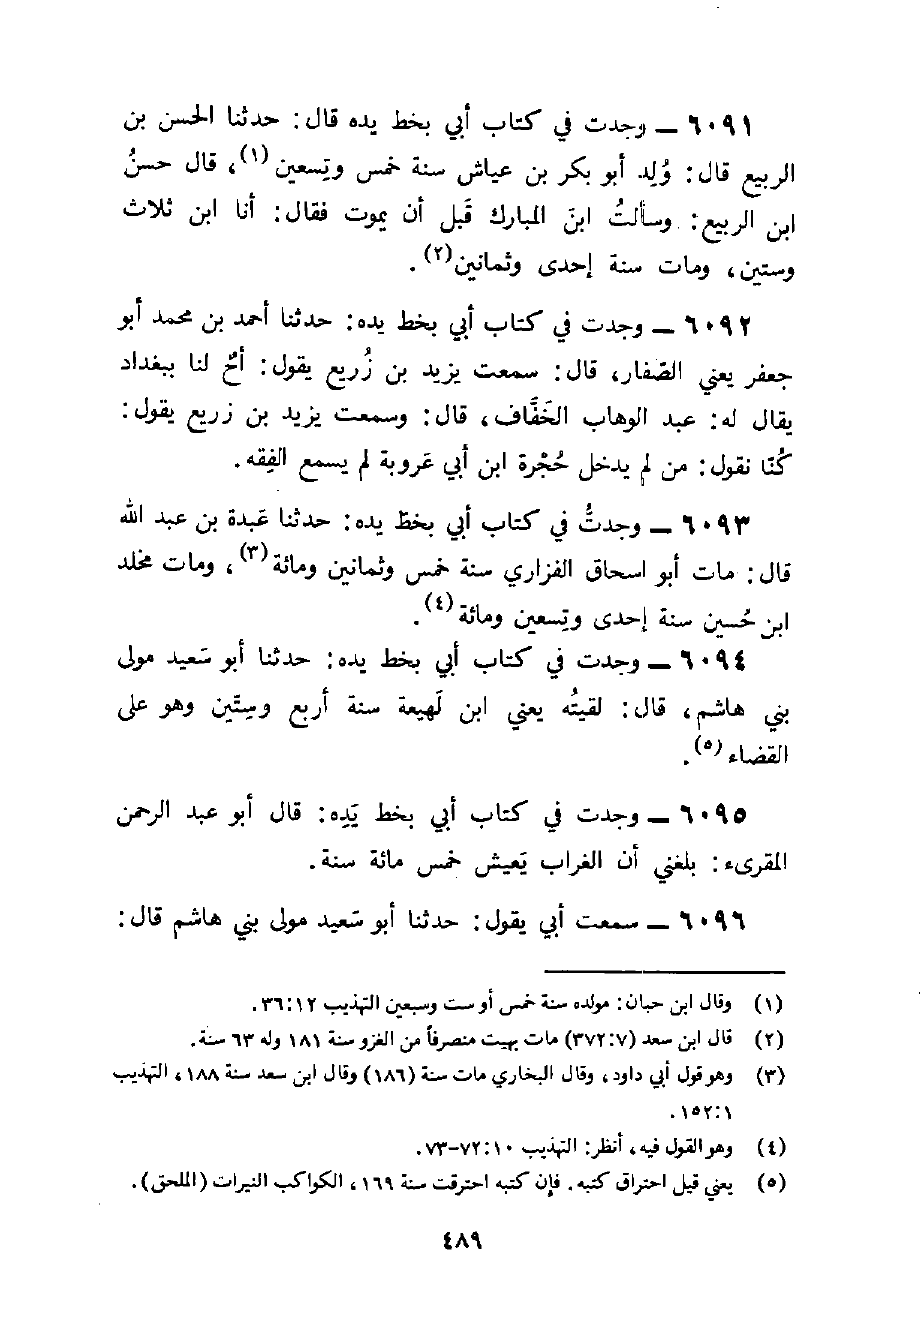 ٦٠٩١ ــ وجدت في كتاب أبي بخط يده قال: حدثنا الحسن بن
الربيع قال: وُلِد أبو بكر بن عياش سنة خمس وتِسعين(١)، قال حسنُ
ابن الربيع: وسألتُ ابنَ المبارك قَبل أن يموت فقال: أنا ابن ثلاث
وستين، ومات سنة إحدى وثمانين(٢).
٦٠٩٢ ــ وجدت في كتاب أبي بخط يده: حدثنا أحمد بن محمد أبو
جعفر يعني الصّفار، قال: سمعت يزيد بن زُريع يقول: أخٌ لنا ببغداد
يقال له: عبد الوهاب الخَفَّاف، قال: وسمعت يزيد بن زريع يقول:
كُنّا نقول: من لم يدخل حُجْرة ابن أبي عَروبة لم يسمع الفِقه.
٦٠٩٣ ــ وجدتُ في كتاب أبي بخطّ يده: حدثنا عَبدة بن عبد الله
قال: مات أبو اسحاق الفزاري سنة خمس وثمانين ومائة(٣)، ومات مخلد
ابن حُسين سنة إحدى وتِسعين ومائة(٤).
٦٠٩٤ ــ وجدت في كتاب أبي بخط يده: حدثنا أبو سَعيد مولى
بني هاشم، قال: لقيتُه يعني ابن لَهيعة سنة أربع وسِتّين وهو على
القضاء(٥).
٦٠٩٥ ــ وجدت في كتاب أبي بخط يَدِه: قال أبو عبد الرحمن
المقرىء: بلغني أن الغراب يَعيش خمس مائة سنة.
٦٠٩٦ ــ سمعت أبي يقول: حدثنا أبو سَعيد مولى بني هاشم قال:
(١) وقال ابن حبان: مولده سنة خمس أو ست وسبعين التهذيب ٣٦:١٢.
(٢) قال ابن سعد (٣٧٢:٧) مات بهيت منصرفاً من الغزو سنة ١٨١ وله ٦٣ سنة.
(٣) وهو قول أبي داود، وقال البخاري مات سنة (١٨٦) وقال ابن سعد سنة ١٨٨، التهذيب
١٥٢:١.
(٤) وهو القول فيه، أنظر: التهذيب ٧٢:١٠-٧٣.
(٥) يعني قبل احتراق كتبه. فإن كتبه احترقت سنة ١٦٩، الكواكب النيرات (الملحق).
٤٨٩